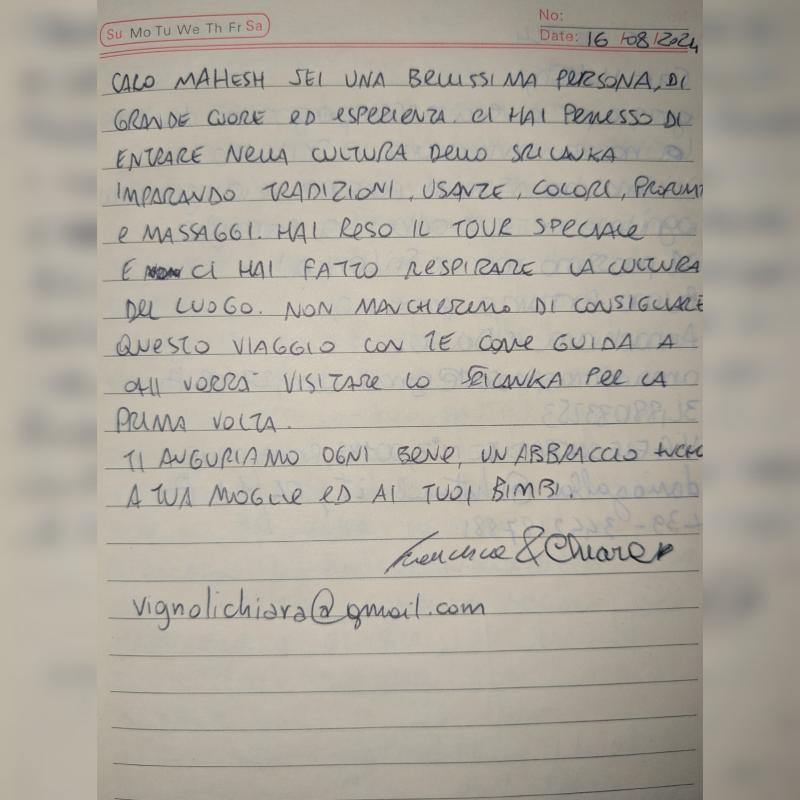 Su Mo Tu We Th Fr Sa
No:
Date: 16/08/2024
CARO MAHESH SEI UNA BELLISSIMA PERSONA, DI
GRANDE CUORE ED ESPERIENZA. CI HAI PERMESSO DI
ENTRARE NELLA CULTURA DELLO SRI LANKA
IMPARANDO TRADIZIONI, USANZE, COLORI, PROFUMI
E MASSAGGI. HAI RESO IL TOUR SPECIALE
E CI HAI FATTO RESPIRARE LA CULTURA
DEL LUOGO. NON MANCHEREMO DI CONSIGLIARE
QUESTO VIAGGIO CON TE COME GUIDA A
CHI VORRÀ VISITARE LO SRILANKA PER LA
PRIMA VOLTA.
TI AUGURIAMO OGNI BENE, UN ABBRACCIO ANCHE
A TUA MOGLIE ED AI TUOI BIMBI.
Francesca & Chiara
vignolichiara@gmail.com